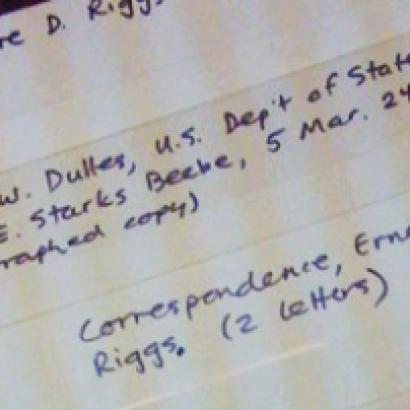 re D. Riggs
W. Dulles, U.S. Dep't of State
E. Starks Beebe, 5 Mar. 24
raphed copy)
Correspondence, Erne
Riggs. (2 letters)